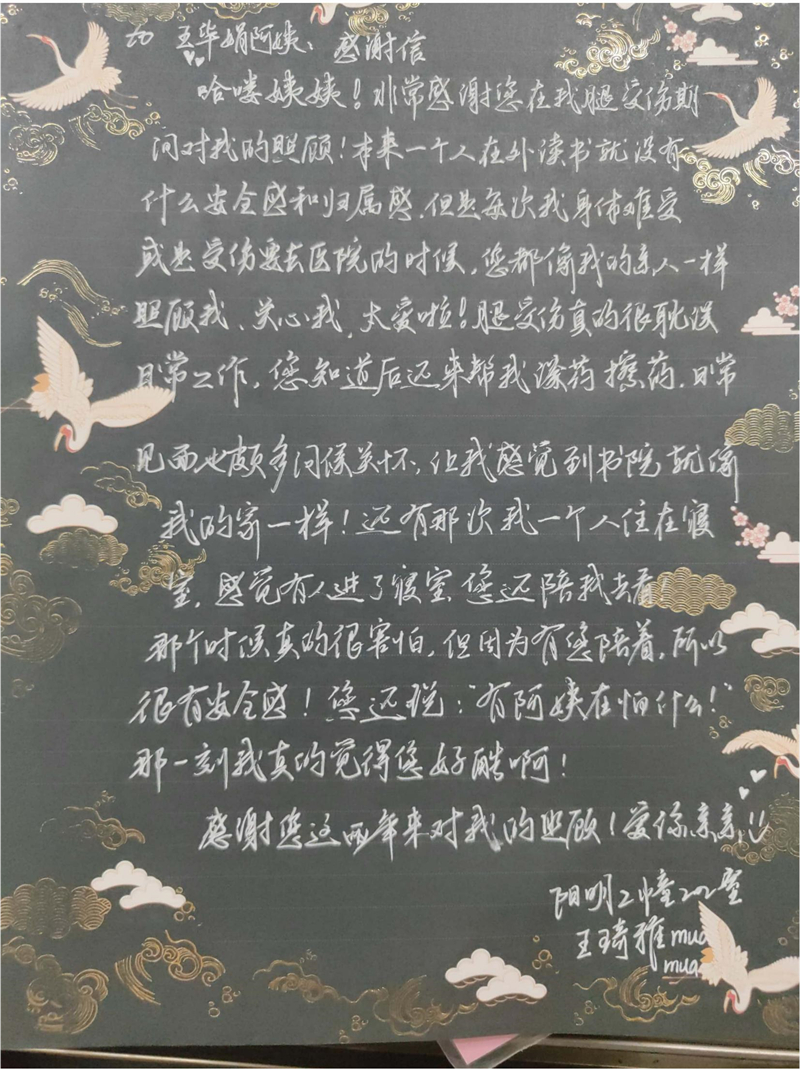 to 王华娟阿姨： 感谢信
哈喽姨姨！非常感谢您在我腿受伤期
间对我的照顾！本来一个人在外读书就没有
什么安全感和归属感，但是每次我身体难受
或是受伤要去医院的时候，您都像我的亲人一样
照顾我、关心我，太爱啦！腿受伤真的很耽误
日常工作，您知道后还来帮我涂药擦药，日常
见面也颇多问候关怀，让我感觉到书院就像
我的家一样！还有那次我一个人住在寝
室，感觉有人进了寝室，您还陪我去看！
那个时候真的很害怕，但因为有您陪着，所以
很有安全感！您还说：“有阿姨在怕什么！”
那一刻我真的觉得您好酷啊！
感谢您这两年来对我的照顾！爱你亲亲！！
阳明2幢202室
王琦雅 mua
mua